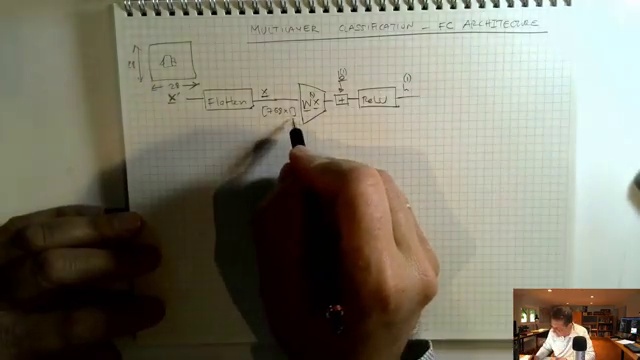 MULTILAYER CLASSIFICATION - FC ARCHITECTURE
28
28
X'
Flatten
x
W x
+
ReLU
h
(1)